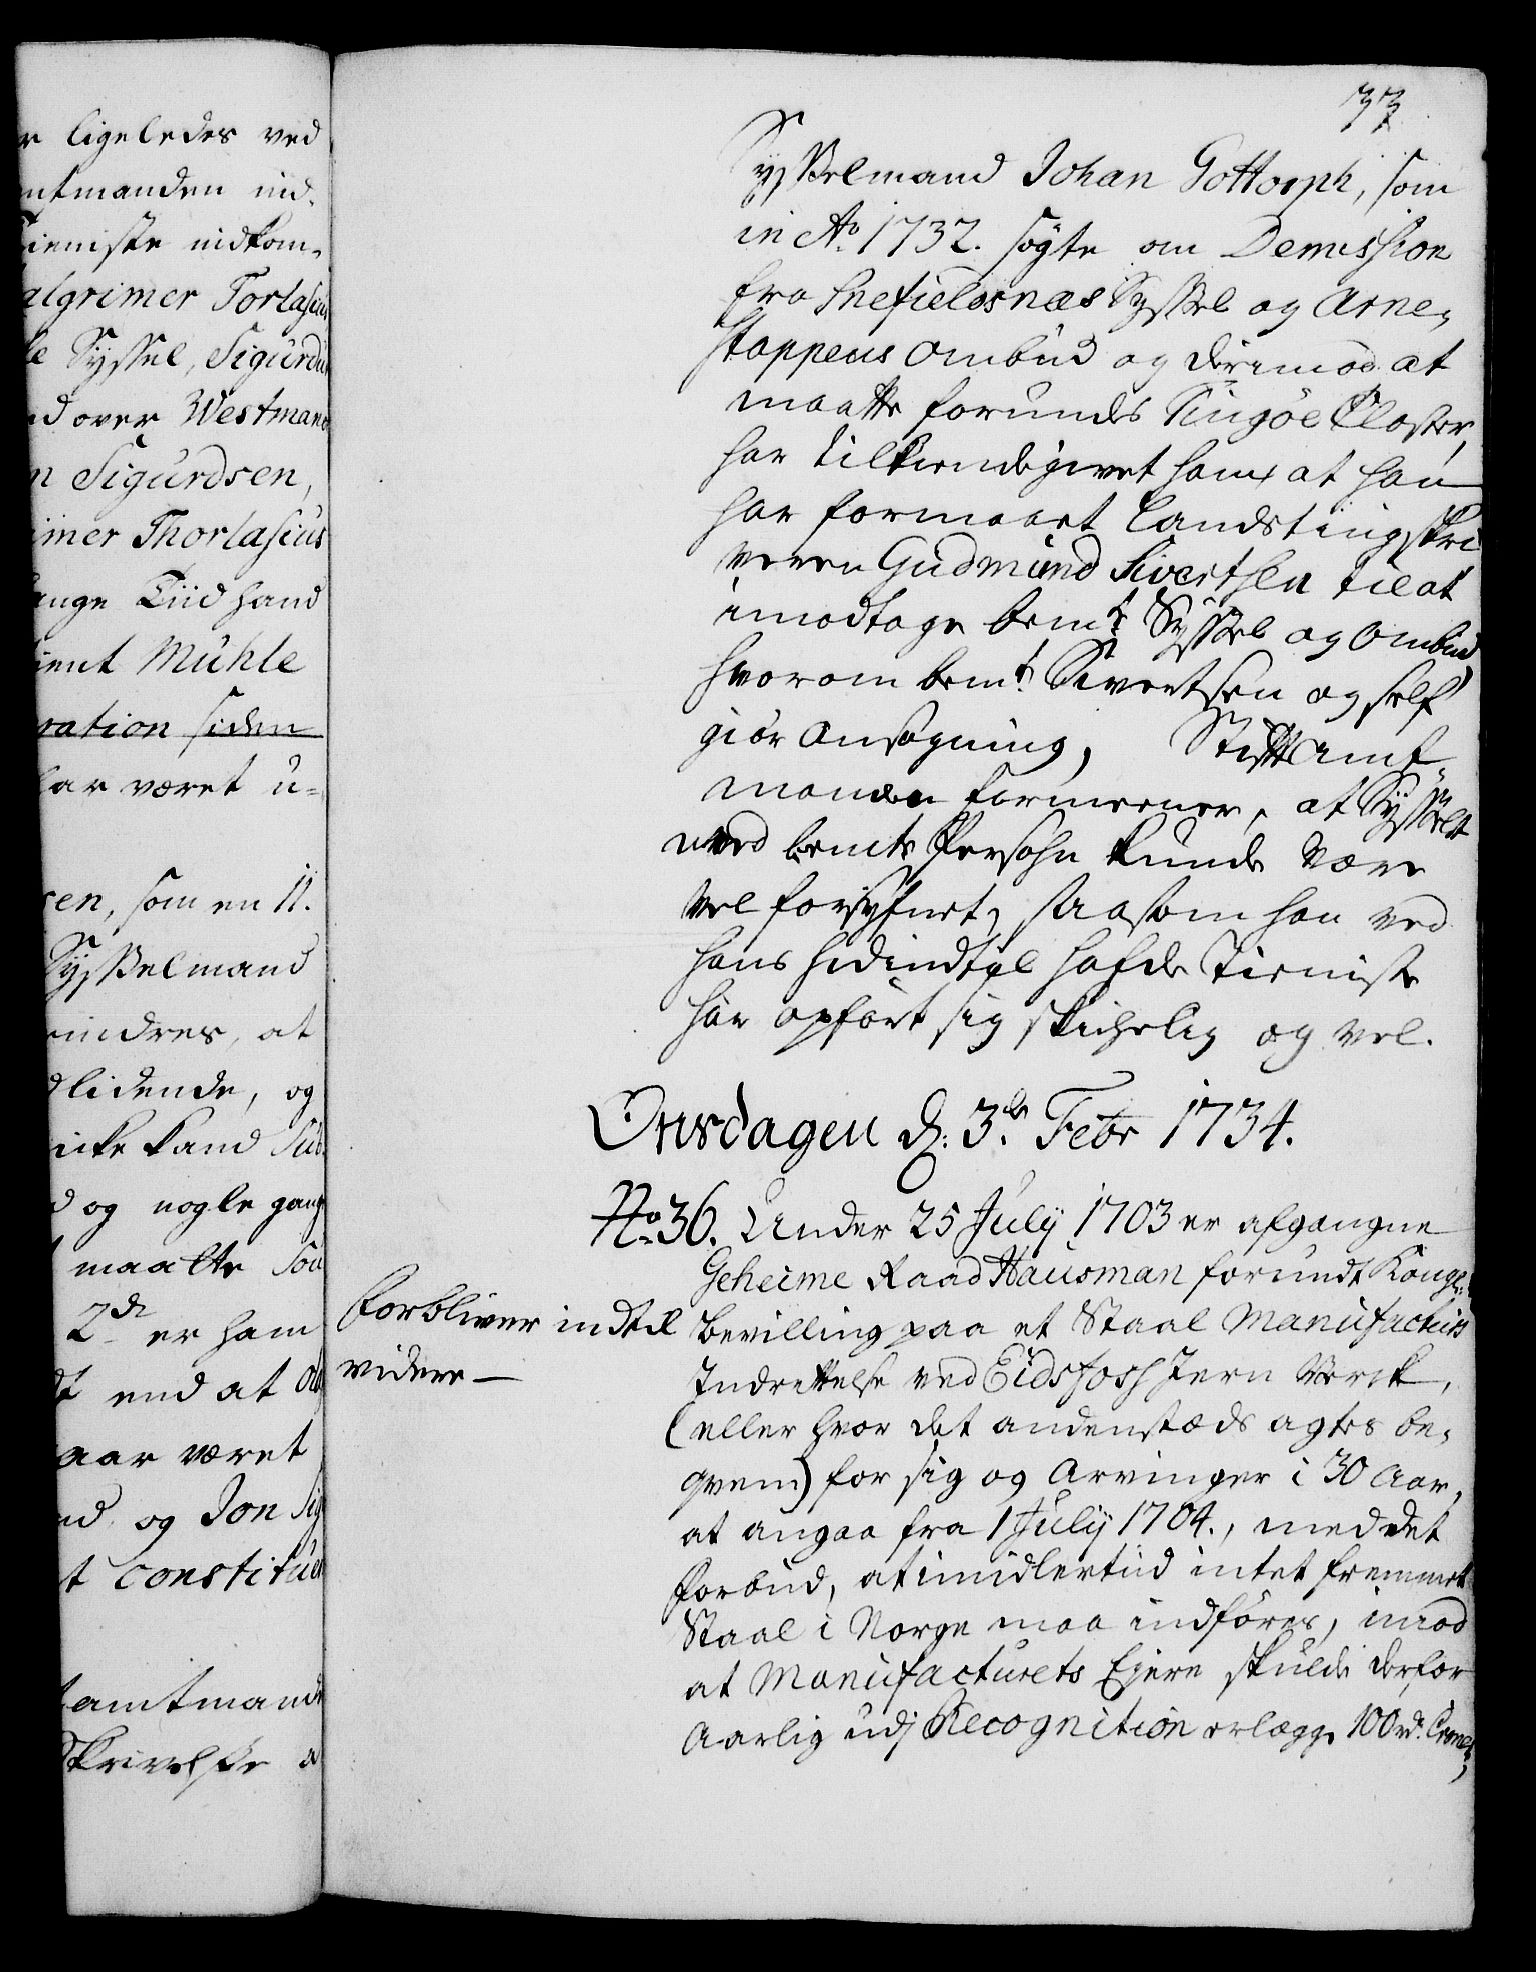 r ligeledes ved
mtmanden ind-
tieniste indkom-
algrimer Torlasius
le Syssel, Sigurdu
nd over Westmano
n Sigurdsen,
imer Thorlasius
lange Tiid hand
ient Mühle
ration siden
har været u-
sen, som en 11.
Sysselmand
indres, at
dlidende, og
icke kand Sub
d og nogle gang
maatte
2de er ham
dt end at
aar været
nd og Jon Sig
t constitue
tamtmand
Skrivelse
33
Sysselmand Johan Gottorph, som
in Ao 1732. søgte om Demission
fra Snefieldsnæs Syssel og Arne-
stappens Ombud og derimod at
maatte forundes Tingøe Closter,
har tilkiendegivet ham, at han
har formaaet Landstingskri
veren Gudmund Sivertsen til at
imodtage bemte Syssel og Ombud,
hvorom bemte Sivertsen og self
giør Ansøgning, Stiftamt-
manden formeener, at Sysselet
med bemte Persohn kunde være
vel forsynet, saasom han ved
hans hidindtil hafde Tieniste
har opført sig skichelig og vel.
Onsdagen d: 3de Febr 1734.
No 36. Under 25 July 1703 er afgangne
Geheime Raad Hausman forundt Kongel:
bevilling paa et Staal Manufacturs
Indrettelse ved Eidsfoss Jern Verck,
(eller hvor det andenstæds agtes be-
qvem) for sig og Arvinger i 30 Aar,
at angaa fra 1 July 1704., med det
forbud, at imidlertiid intet fremmet
Staal i Norge maa indføres, imod
at Manufacturets Ejere skulde derfor
Aarlig udj Recognition erlægge 100 rdr. Croner,
forbliver indtil
videre —